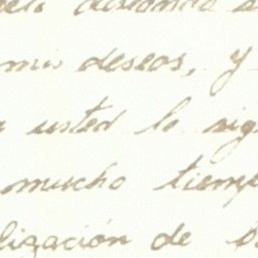 mis deseos, y
usted lo sig
mucho tiemp
lización de